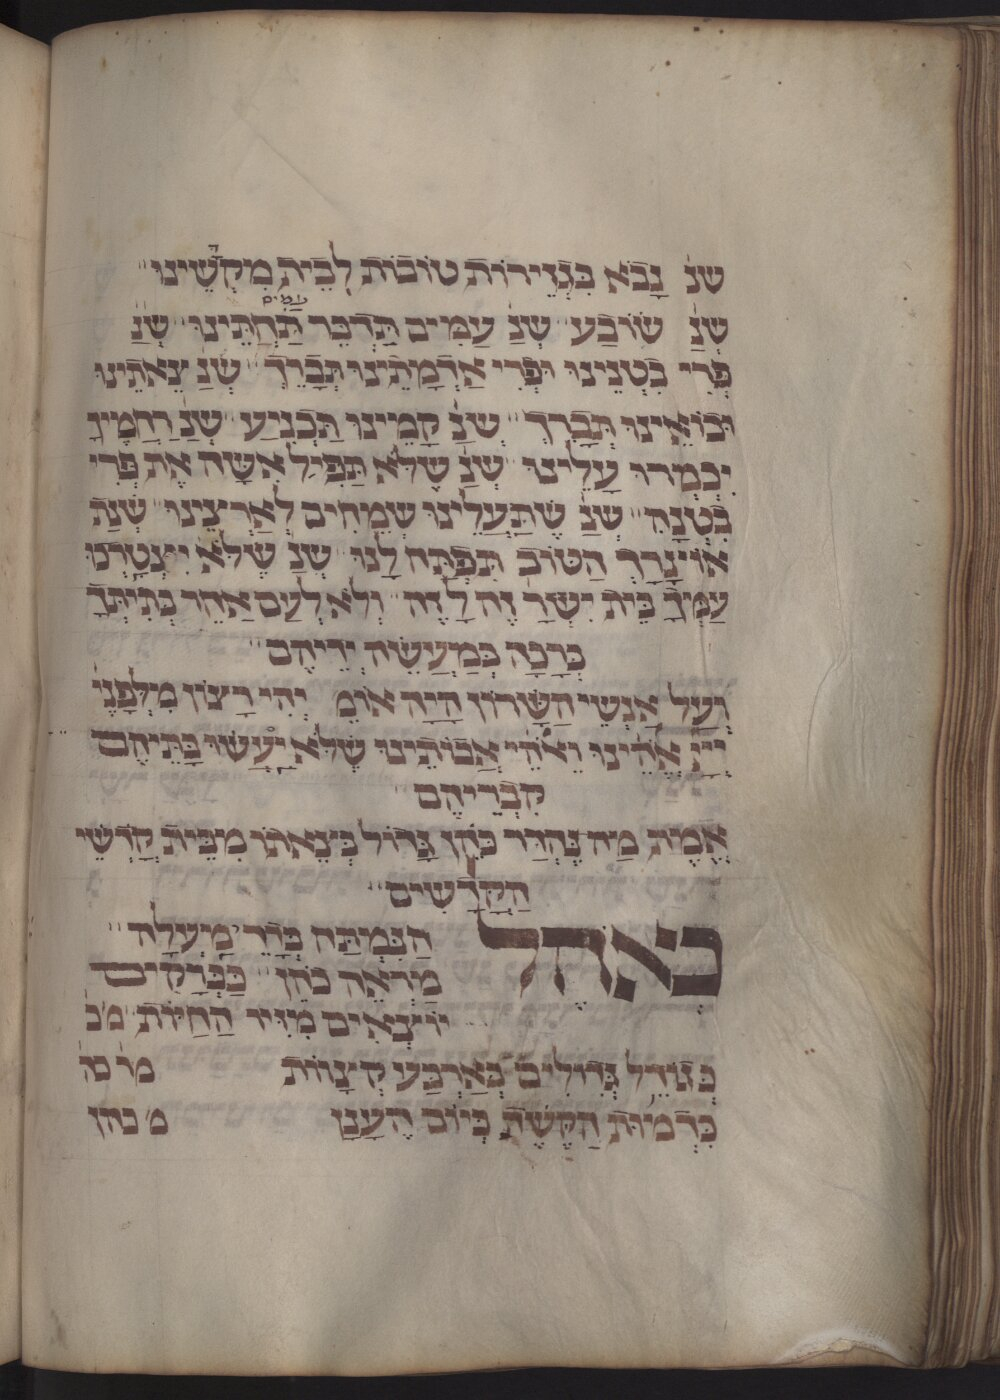 שנ נָבֹא בִּגְזֵירוֹת טוֹבוֹת לְבֵית מִקְדָשֵׁינוּ
עמים
שְׁנַ שׂוֹבַע שְׁנַ עַמִּים תַּדְבֵּר תַּחְתֵּינוּ שְׁנַ
פְּרִי בִטְנֵינוּ וּפְרִי אַדְמָתֵינוּ תְּבָרֵךְ שְׁנַ צֵאתֵינוּ
וּבוֹאֵינוּ תְּבָרֵךְ שְׁנַ קָמֵינוּ תַּכְנִיעַ שְׁנַ רַחֲמֶיךָ
יִכְמְרוּ עָלֵינוּ שְׁנַ שֶׁלֹּא תַּפִּיל אִשָּׁה אֶת פְּרִי
בִּטְנָהּ שְׁנַ שֶׁתַּעֲלֵינוּ שְׂמֵחִים לְאַרְצֵינוּ שְׁנַת
אוֹצָרָךְ הַטּוֹב תִּפְתַּח לָנוּ שְׁנַ שֶׁלֹּא יִצְטָרְכוּ
עַמְּךָ בֵּית יִשְׂרָ זֶה לָזֶה וְלֹא לְעַם אַחֵר בְּתִיתְּךָ
בְּרָכָה בְּמַעֲשֵׂה יְדֵיהֶם
וְעַל אַנְשֵׁי הַשָּׁרוֹן הָיָה אוֹמֵ יְהִי רָצוֹן מִלְּפָנֶי
יְיָ אֱלֹהֵינוּ וֵאלֹהֵי אֲבוֹתֵינוּ שֶׁלֹּא יֵעָשׂוּ בָּתֵּיהֶם
קִבְרֵיהֶם
אֱמֶת מַה נֶּהְדַּר כֹּהֵן גָּדוֹל בְּצֵאתוֹ מִבֵּית קָדְשֵׁי
הַקֳּדָשִׁים
כְּאֹהֶל הַנִּמְתַּח בְּדָרֵי מַעְלָה
מַרְאֵה כֹהֵן כִּבְרָקִים
יוֹצְאִים מִזִּיו הַחַיּוֹת מ כ
כְּגוֹדֶל גְּדִילִים בְּאַרְבַּע קְצָווֹת
כִּדְמוּת הַקֶּשֶׁת בְּיוֹם הֶעָנָן מ כהן